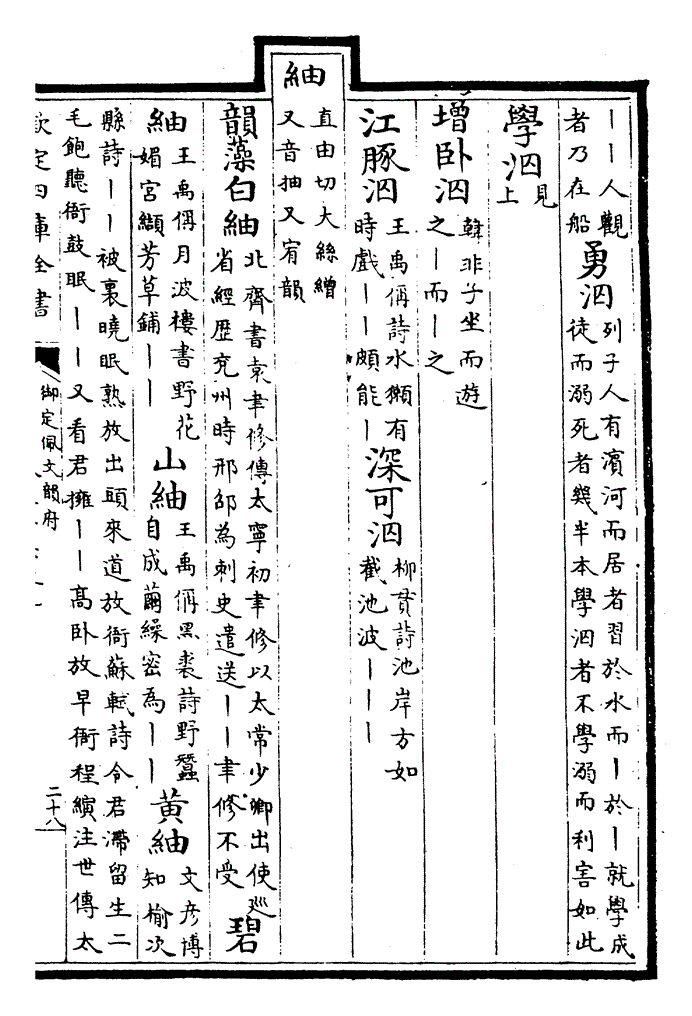 丨丨人觀
者乃在船
勇泅
列子人有濱河而居者習於水而丨於丨就學成
徒而溺死者幾半本學泅者不學溺而利害如此
學泅
見
上
增臥泅
韓非子坐而遊
之丨而丨之
江豚泅
王禹偁詩水獺有
時戲丨丨頗能丨
深可泅
柳貫詩池岸方如
截池波丨丨丨
紬
直由切大絲繒
又音抽又宥韻
韻藻白紬
北齊書袁聿修傳太寧初聿修以太常少卿出使巡
省經歷兖州時邢邵為刺史遣送丨丨聿修不受
碧
紬
王禹偁月波樓書野花
媚宮纈芳草鋪丨丨
山紬
王禹偁黑裘詩野蠶
自成繭繰密為丨丨
黃紬
文彥博
知榆次
縣詩丨丨被裏曉眠熟放出頭來道放衙蘇軾詩令君滯留生二
毛飽聽衙鼓眠丨丨又看君擁丨丨高臥放早衙程縯注世傳太
欽定四庫全書
御定佩文韻府
二十八